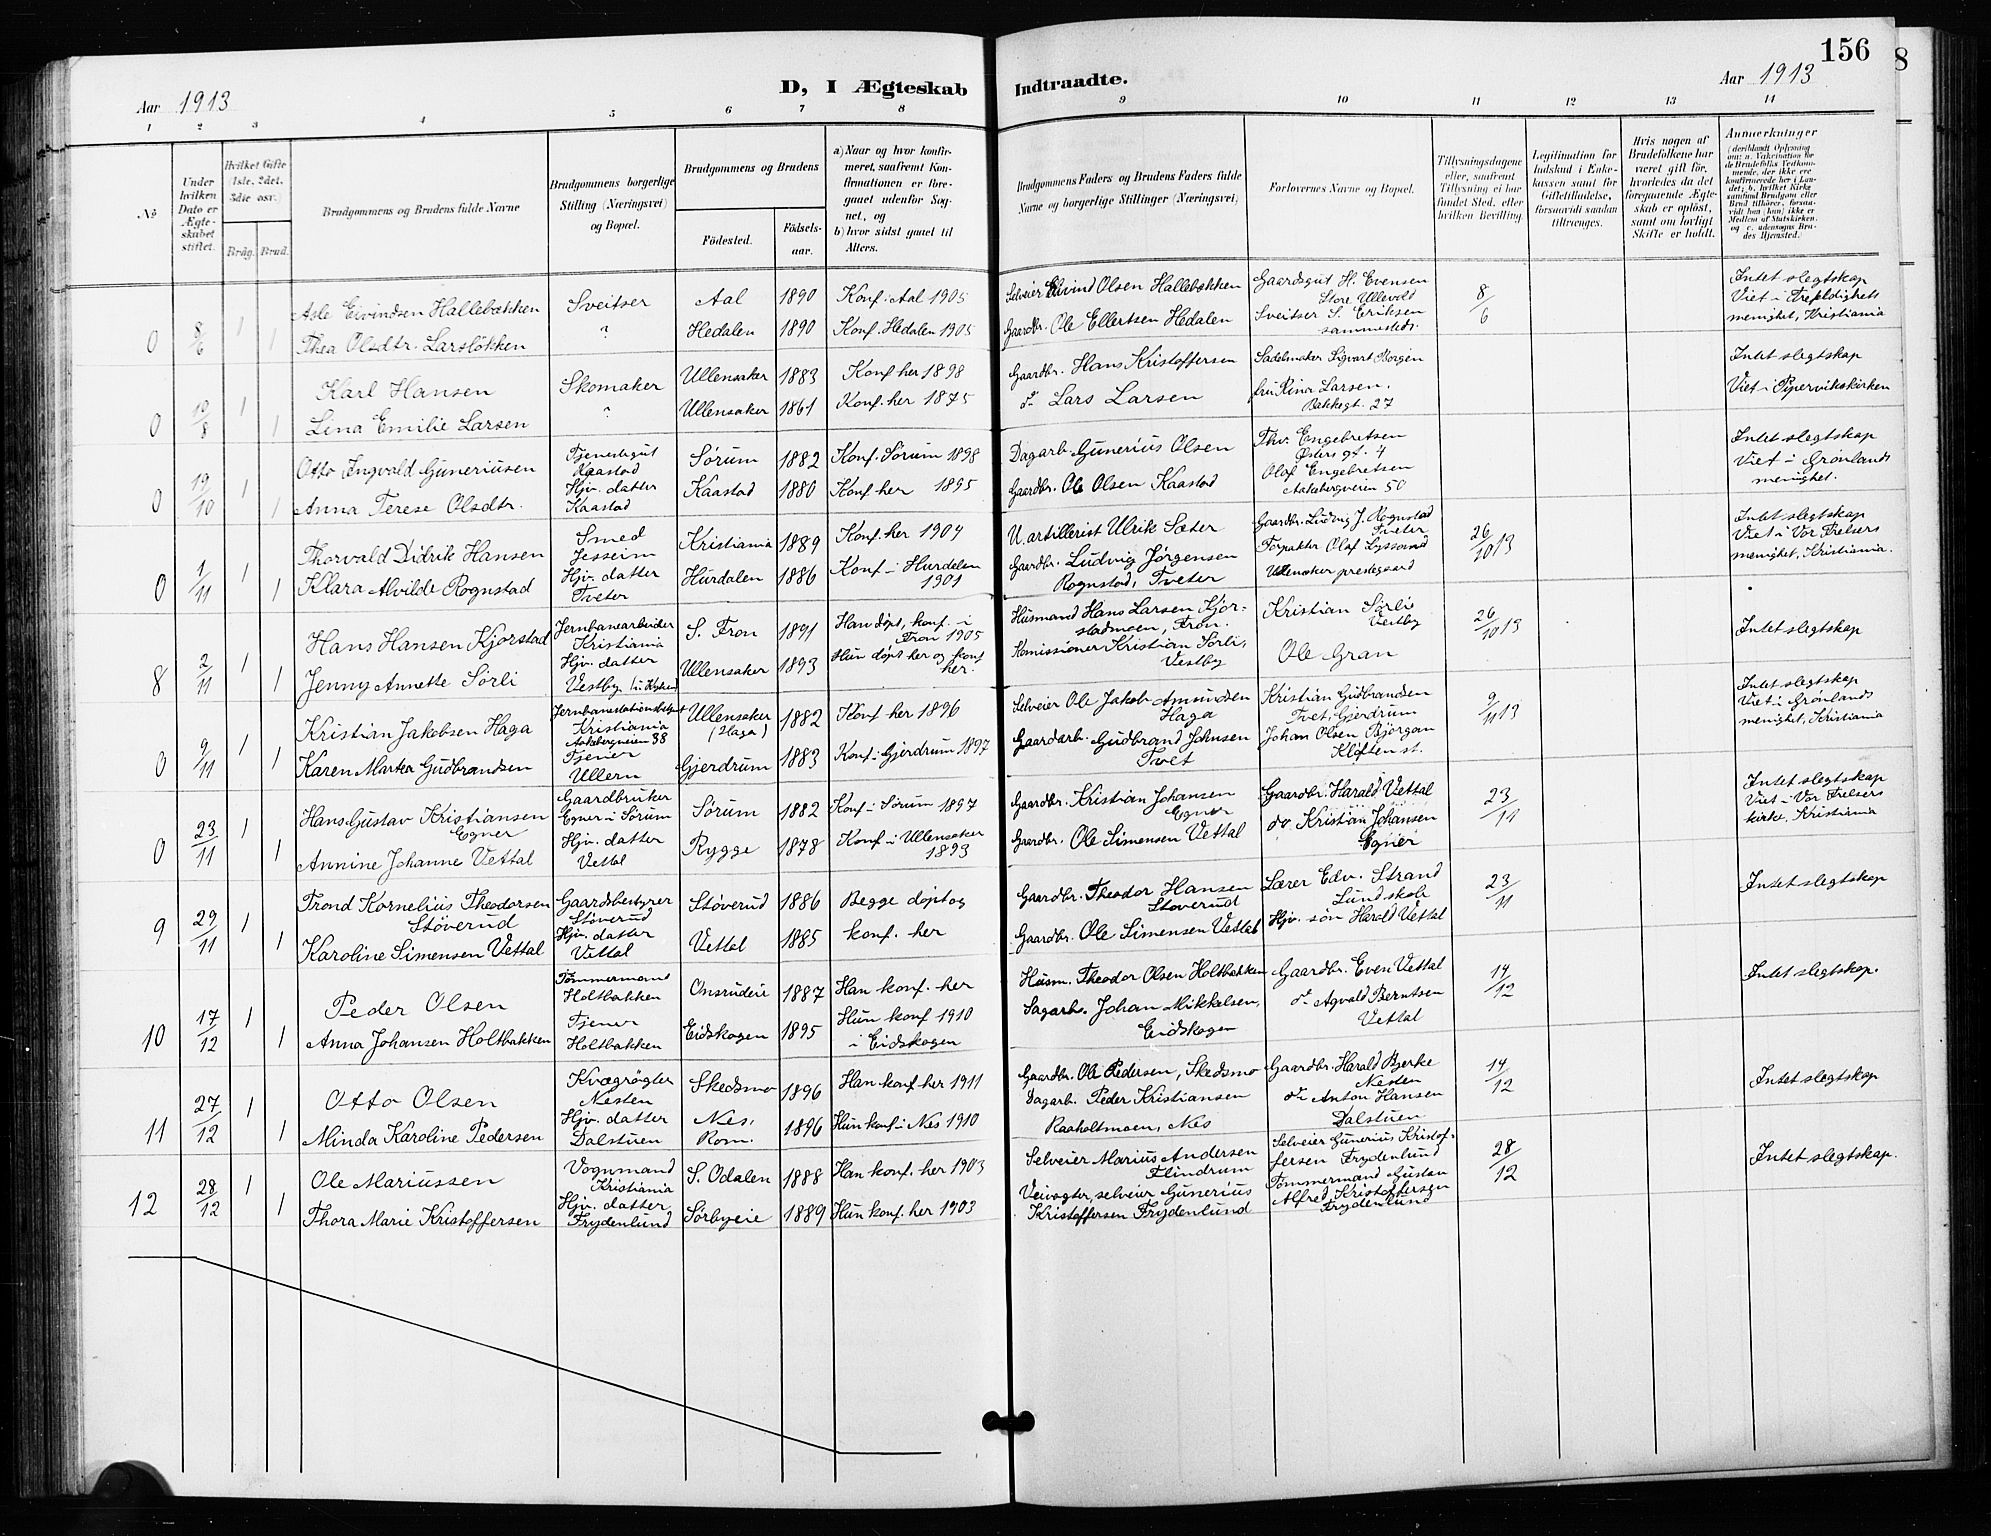 156
8
Aar 1913
D, I Ægteskab
Indtraadte.
Aar 1913
1 2 3 4 5 6 7 8 9 10 11 12 13 14
No
Under hvilken Dato er Ægteskabet stiftet.
Hvilket Gifte 1ste, 2det, 3die osv.
Brdg. Brud.
Brudgommens og Brudens fulde Navne
Brudgommens borgerlige Stilling (Næringsvei) og Bopæl.
Brudgommens og Brudens
Födested.
Födselsaar.
a) Naar og hvor konfirmeret, saafremt Konfirmationen er foregaaet udenfor Sognet, og
b) hvor sidst gaaet til Alters.
Brudgommens Faders og Brudens Faders fulde Navne og borgerlige Stillinger (Næringsvei)
Forlovernes Navne og Bopæl.
Tillysningsdagene eller, saafremt Tillysning ei har fundet Sted, efter hvilken Bevilling.
Legitimation for Indskud i Enkekassen samt for Giftetilladelse, forsaavidt saadan tiltrænges.
Hvis nogen af Brudefolkene har været gift för, hvorledes da det foregaaende Ægteskab er oplöst, samt om lovligt Skifte er holdt.
Anmerkninger
(deriblandt Oplysning om: a. Vakcination for de Brudefolks Vedkommende, der ikke ere konfirmerede her i Landet; b. hvilket Kirkesamfund Brudgom eller Brud tilhörer, forsaavidt han (hun) ikke er Medlem af Statskirken, og c. udensogns Brudes Hjemsted.)
0 8/6 1 Asle Eivindsen Hallebækken Sveitser Aal 1890 Konf. i Aal 1905 Selveier Eivind Olsen Hallebækken Gaardsgut H. Evensen Store Ullevold 8/6 Intet slegtskap
1 Thea Olsdtr. Larsløkken ? Hedalen 1890 Konf. i Hedalen 1905 Gaardbr. Ole Ellertsen Hedalen Sveitser S. Eriksen sammesteds. Viet i Trefoldighets menighet, Kristiania
0 10/8 1 Karl Hansen Skomaker Ullensaker 1883 Konf her 1898 Gaardbr. Hans Kristoffersen Sadelmaker Sigvart Borgen Intet slegtskap
1 Lina Emilie Larsen Ullensaker 1861 Konf. her 1875 do Lars Larsen fru Rina Larsen, Bakkegt. 27 Viet i Pipervikskirken
0 19/10 1 Otto Ingvald Guneriusen Tjenestegut Kaastad Sørum 1882 Konf. i Sørum 1898 Dagarb Gunerius Olsen Thv. Engebretsen Østers gt. 4 Intet slegtskap
1 Anna Terese Olsdtr. Hjv. datter Kaastad Kaastad 1880 Konf. her 1895 Gaardbr. Ole Olsen Kaastad Olaf Engebretsen Aakebergveien 50 Viet i Grønlands menighet.
0 1/11 1 Thorvald Didrik Hansen Smed Jesseim Kristiania 1889 Konf. her 1904 U. artillerist Ulrik Sæter Gaardbr. Ludvig J. Rognstad Tveter 26/10 13 Intet slegtskap
1 Klara Alvilde Rognstad Hjv. datter Tveter Hurdalen 1886 Konf i Hurdalen 1901 Gaardbr. Ludvig Jørgensen Rognstad, Tveter Forpakter Olaf Lyssand Ullensaker prestegaard Viet i Vor Frelsers menighet, Kristiania.
8 2/11 1 Hans Hansen Kjorstad Jernbanearbeider Kristiania S. Fron 1891 Han døpt, konf. i Fron 1905 Husmand Hans Larsen Kjorstadmoen, Fron. Kristian Sørli Vestby 26/10 13 Intet slegtskap
1 Jenny Annette Sørli Hjv. datter Vestby Ullensaker 1893 Hun døpt her og konf her. Komissioner Kristian Sørli, Vestby Ole Gran
0 9/11 1 Kristian Jakobsen Haga Jernbanestationsbetjent Kristiania Aakebergveien 38 Ullensaker (Haga) 1882 Konf her 1896 Selveier Ole Jakob Amundsen Haga Kristian Gudbrandsen Tvet, Gjerdrum 9/11 13 Intet slegtskap
1 Karen Marta Gudbrandsen Tjener Ullern Gjerdrum 1883 Konf. i Gjerdrum 1897 Gaardarb. Gudbrand Johnsen Tvet Johan Olsen Bjørgan Kløften st. Viet i Grønlands menighet, Kristiania
0 23/11 1 Hans Gustav Kristiansen Egner Gaardbruker Egner i Sørum Sørum 1882 Konf i Sørum 1897 Gaardbr. Kristian Johansen Egner Gaardbr. Harald Vettal 23/11 Intet slegtskap
1 Annine Johanne Vettal Hjv. datter Vettal Rygge 1878 Konf i Ullensaker 1893 Gaardbr. Ole Simensen Vettal do. Kristian Johansen Egner Viet i Vor Frelsers kirke, Kristiania
9 29/11 1 Trond Kornelius Theodorsen Støverud Gaardbestyrer Støverud Støverud 1886 Begge døpt og Gaardbr. Theodor Hansen Støverud Lærer Edv. Strand Lund skole 23/11 Intet slegtskap
1 Karoline Simensen Vettal Hjv. datter Vettal Vettal 1885 konf. her Gaardbr. Ole Simensen Vettal Hjv. søn Harald Vettal
10 17/12 1 Peder Olsen Tømmermand Holtbakken Onsrudeie 1887 Han konf. her Husm. Theodor Olsen Holtbakken Gaardbr. Even Vettal 14/12 Intet slegtskap.
1 Anna Johansen Holtbakken Tjener Holtbakken Eidskogen 1895 Hun konf 1910 i Eidskogen Sagarb. Johan Mikkelsen, Eidskogen do Agvald Berntsen Vettal
11 27/12 1 Otto Olsen Kvægrøgter Nesten Skedsmo 1896 Han konf her 1911 Gaardbr. Ole Pedersen, Skedsmo Gaardbr. Harald Bjerke Nesten 14/12 Intet slegtskap
1 Minda Karoline Pedersen Hjv. datter Dalstuen Nes, Rom. 1896 Hun konf. i Nes 1910 Dagarb. Peder Kristiansen Raaholtmoen, Nes do Anton Hansen Dalstuen
12 28/12 1 Ole Mariussen Vognmand Kristiania S. Odalen 1888 Han konf. her 1903 Selveier Marius Andersen Flindrum Selveier Gunerius Kristoffersen Frydenlund 28/12 Intet slegtskap.
1 Thora Marie Kristoffersen Hjv. datter Frydenlund Sørbyeie 1889 Hun konf. her 1903 Veivogter, selveier Gunerius Kristoffersen Frydenlund Tømmermand Gustav Alfred Kristoffersen Frydenlund